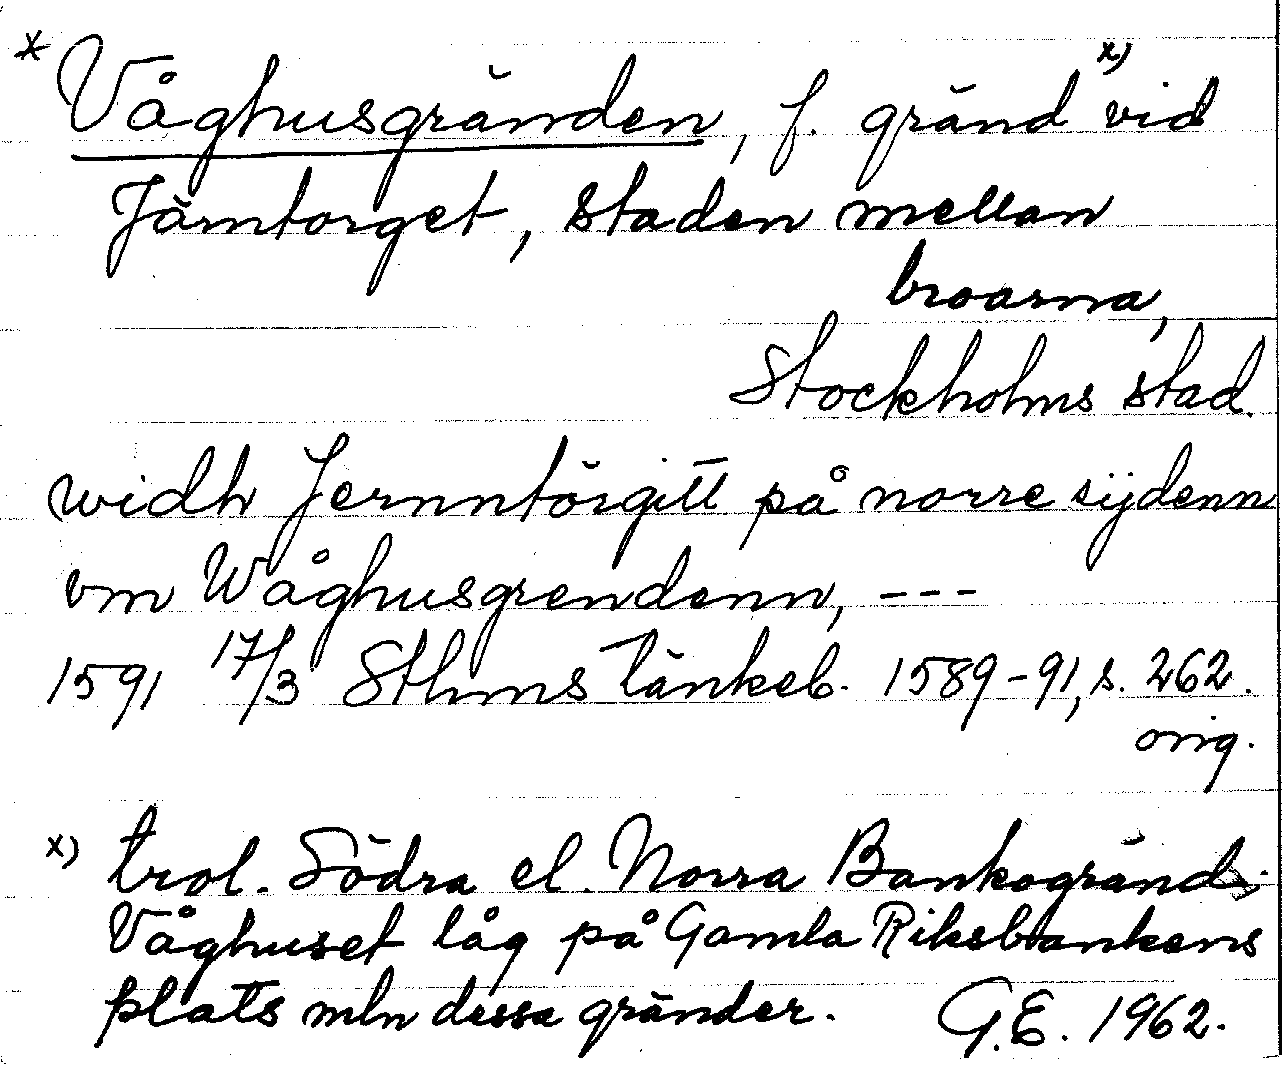 * Våghusgränden, f. gränd x) vid
Järntorget, staden mellan
broarna,
Stockholms stad.
widh Jernntörgitt på norre sijdenn
vm Wåghusgrendenn, ---
1591 17/3 Sthms tänkeb. 1589-91, s. 262.
orig.
x) trol. Södra el. Norra Bankogränd;
Våghuset låg på Gamla Riksbankens
plats mln dessa gränder. G.E. 1962.